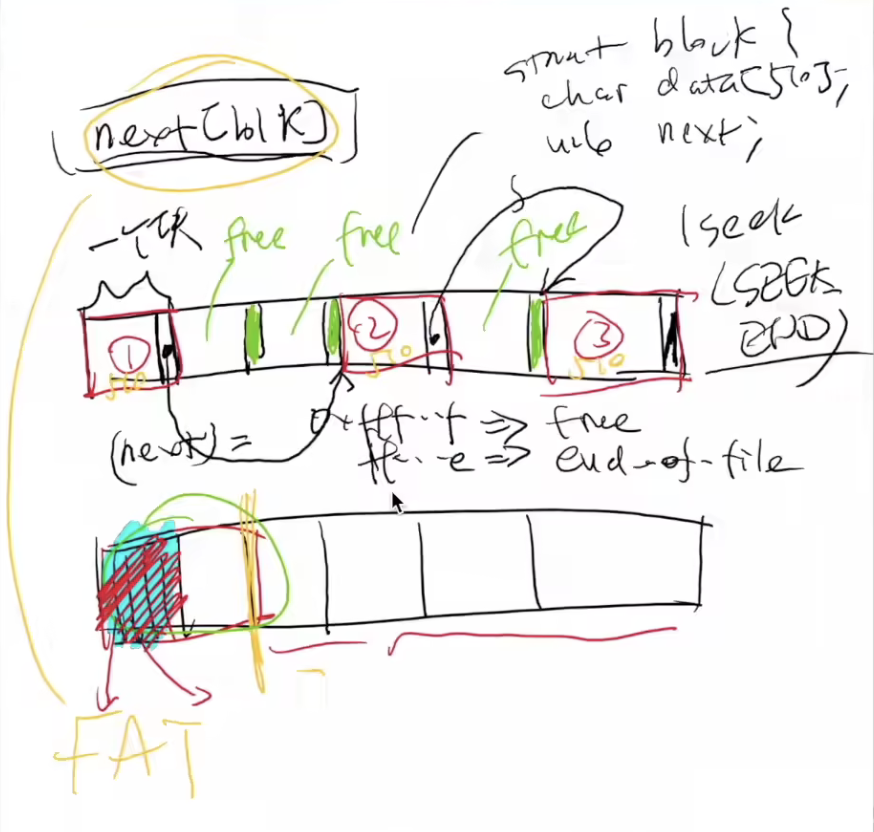 struct block {
char data[510];
u16 next;
next[blk]
一个块 free free free
lseek
(SEEK
END)
1 2 3
510 510 510
(next) =
0xfff..f => free
ff...e => end-of-file
FAT